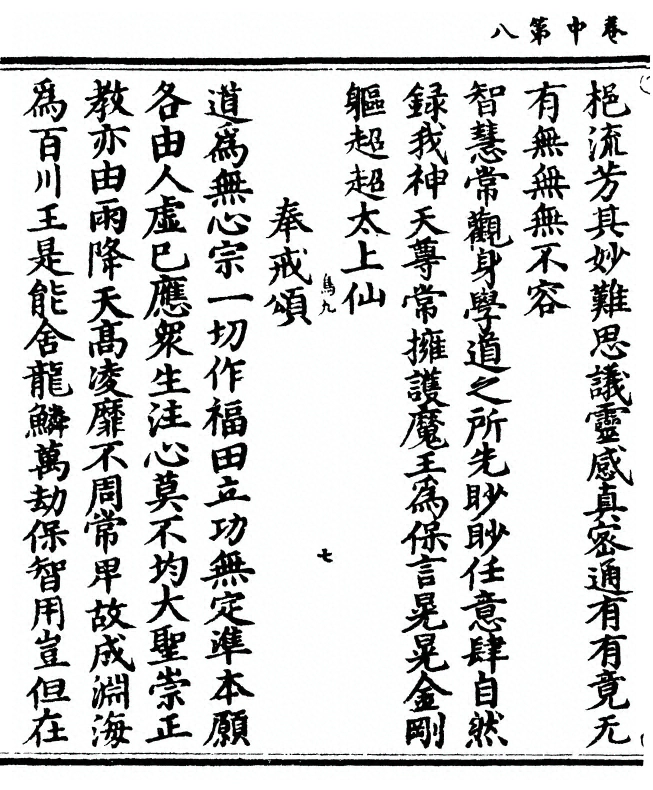 卷中第八
𮎰流芳其妙難思議靈感真宻通有有竟无
有無無無不容
智慧常觀身學道之所先眇眇任意肆自然
録我神天尊常擁護魔王為保言晃晃金剛
軀超超太上仙
奉戒頌
鳥九
七
道為無心宗一切作福田立功無定準本願
各由人虛已應衆生注心莫不均大聖崇正
教亦由雨降天高凌靡不周常卑故成淵海
為百川王是能舍龍鱗萬劫保智用豈但在